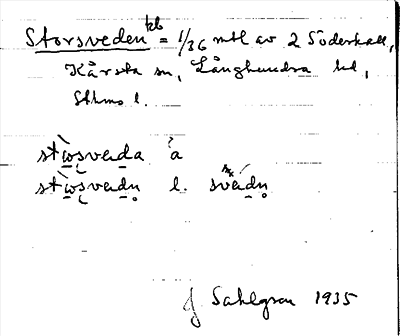 Storsveden kb = 1/36 mtl av 2 Söderhall,
Kårsta sn, Långhundra hd,
Sthms l.
stὼṣvεda ?a
stὼṣvεdn̥ l. svέdn̥
J Sahlgren 1935